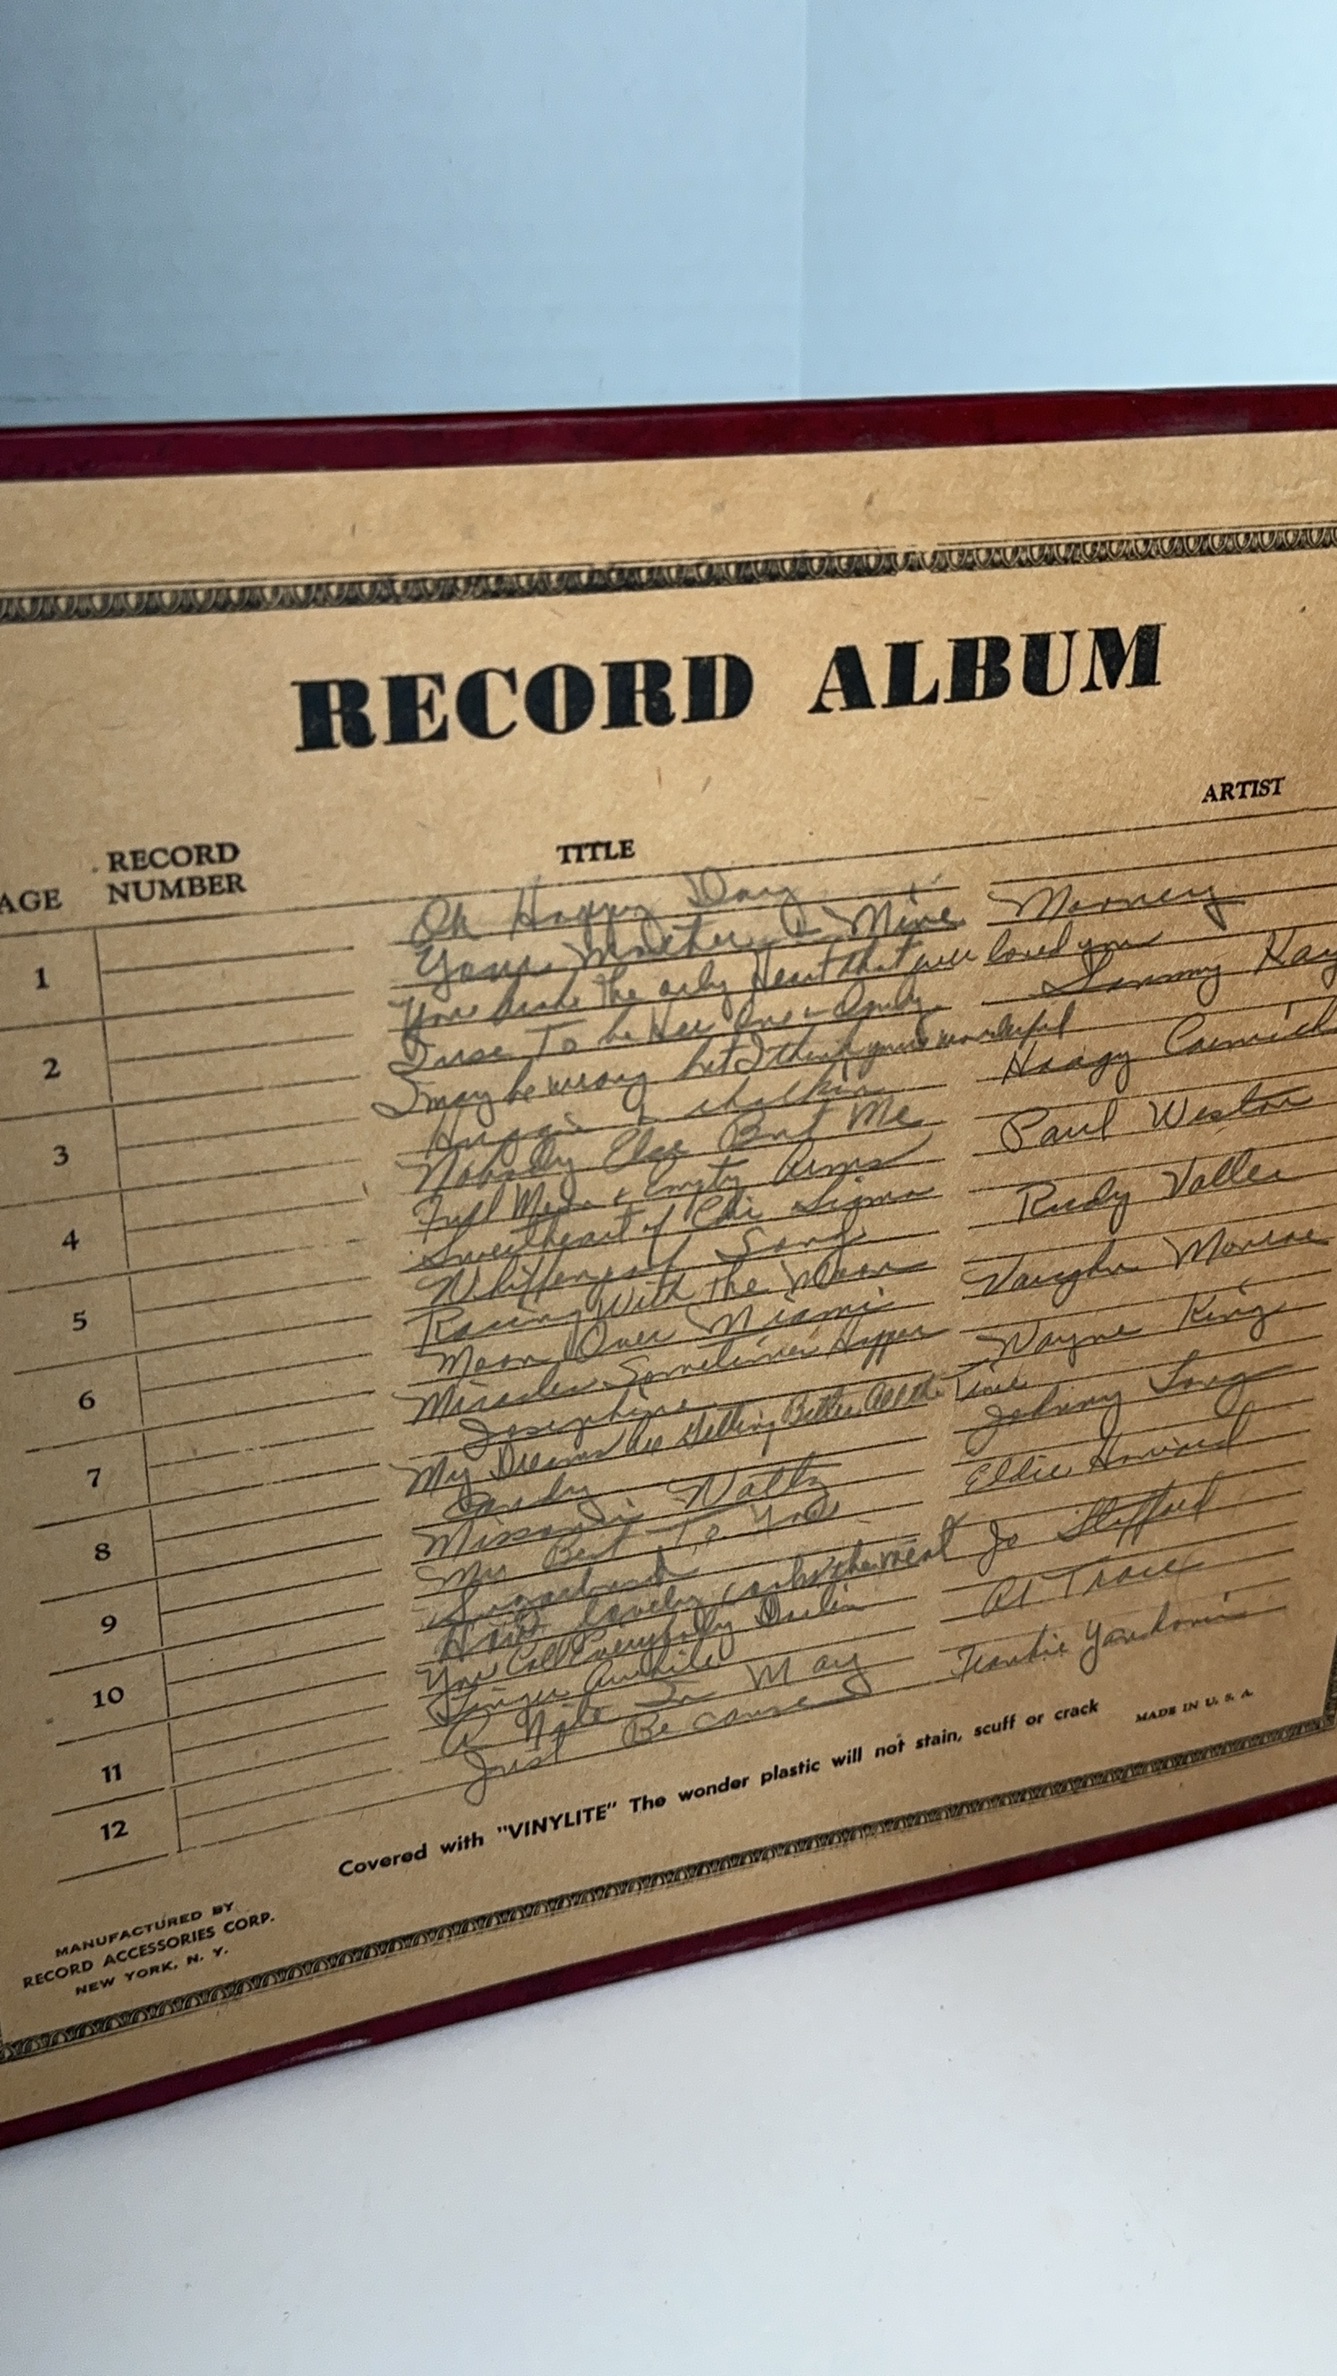 RECORD ALBUM
AGE RECORD NUMBER TITLE ARTIST
1 Oh Happy Day
Your Mother & Mine Mooney
2 You are the only Heart that ever loved you
I use To be Her One & Only Sammy Kay
3 I may be wrong but I think your wonderful
Huggin & chalkin Hoagy Carmich
4 Nobody Else But Me Paul Weston
Full Moon & Empty Arms
5 Sweetheart of Chi Sigma Rudy Vallee
Whiffenpoof Song
6 Racing With the Moon Vaughn Monroe
Moon Over Miami
7 Miracles Sometimes Happen Wayne King
Josephine
8 My Dreams Are Getting Better All the Time Johnny Long
Candy
9 Missouri Waltz Eddie Howard
My Best To You
10 Sugarbush Jo Stafford
How lovely cooks the meat
11 You Call Everybody Darlin Al Trace
Linger Awhile
12 A Nite In May Frankie
Just Because
Covered with "VINYLITE" The wonder plastic will not stain, scuff or crack MADE IN U. S. A.
MANUFACTURED BY
RECORD ACCESSORIES CORP.
NEW YORK, N. Y.